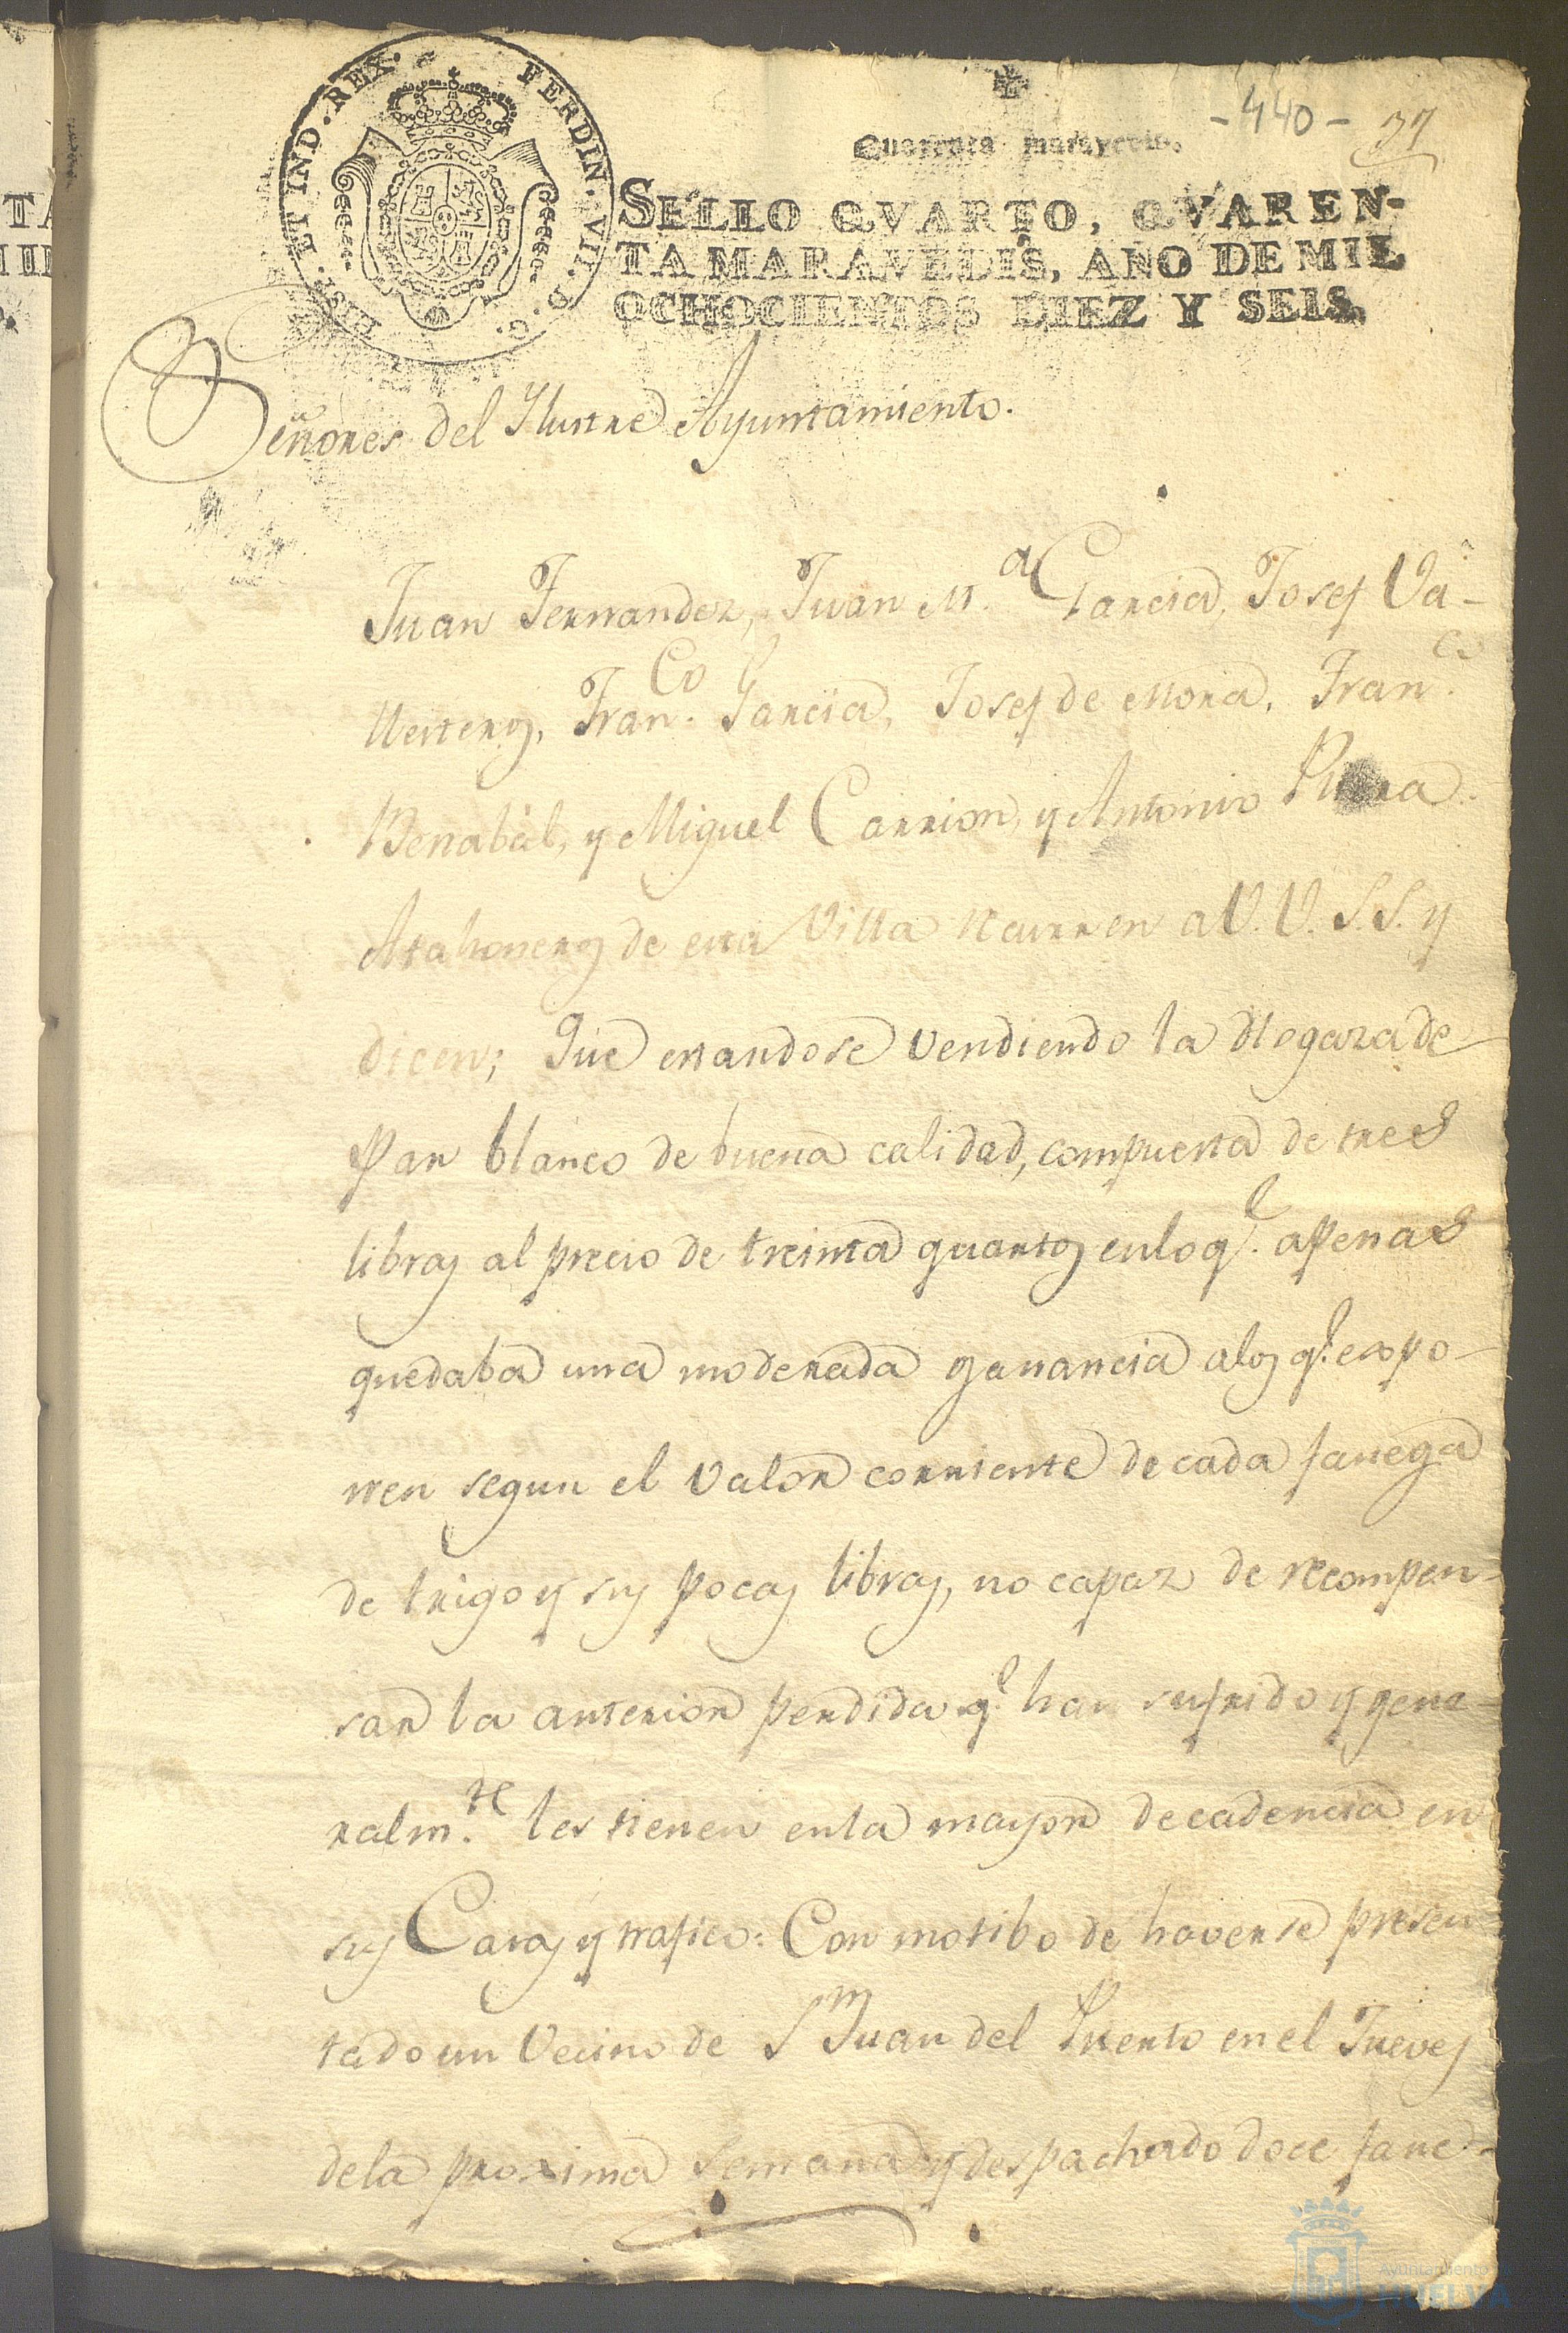 -440- 37
Quarenta maravedis.
FERDIN. VII. D. G. HISP. ET IND. REX.
SELLO QVARTO, QVAREN-
TA MARAVEDIS, AÑO DE MIL
OCHOCIENTOS DIEZ Y SEIS.
Señores del Ilustre Ayuntamiento.
Juan Fernandez, Juan M.ª Garcia, Josef Va-
llesteros, Fran.co Garcia, Josef de Mora, Fran.co
Benabàt, y Miguel Carrion, y Antonio
Atahoneros de esta Villa recurren a V.V. S.S. y
dicen; Que estandose vendiendo la Hogaza de
Pan blanco de buena calidad, compuesta de tres
libras al precio de treinta quartos en lo q.e apenas
quedaba una moderada ganancia a los q.e expo-
nen segun el valor corriente de cada fanega
de trigo y sus pocas libras, no capaz de recompen-
sar la anterior perdida q.e han sufrido y gene-
ralm.te les tienen en la mayor decadencia en
sus Casas y trafico: Con motibo de haverse presen-
tado un Vecino de S.n Juan del Puerto en el Jueves
de la proxima Semana y despachado doce fane-
Ayuntamiento de
HUELVA